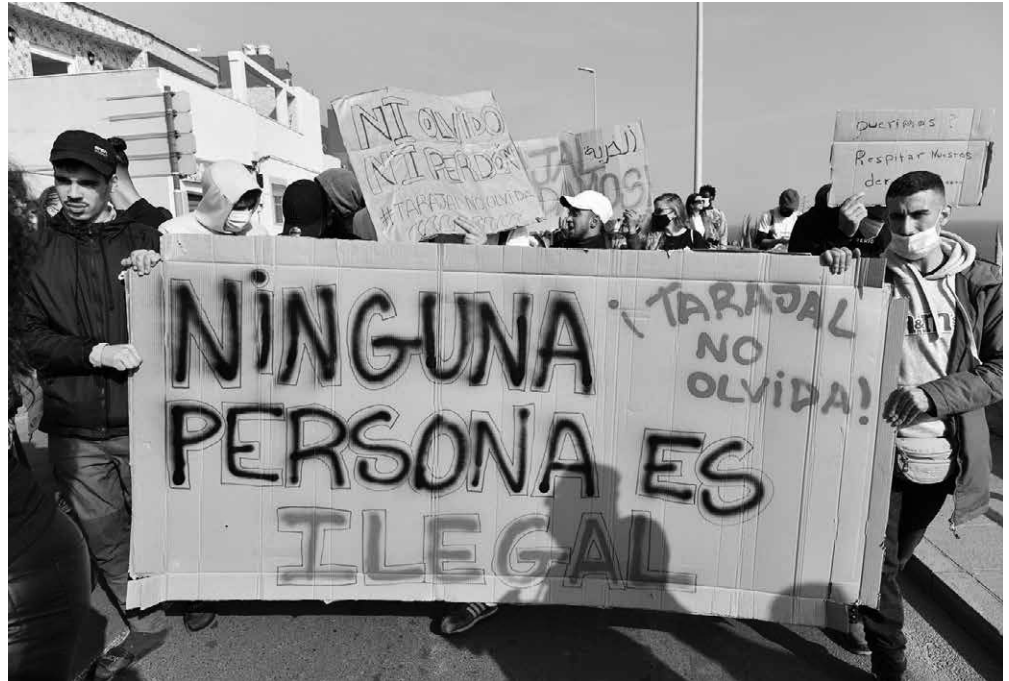 NI OLVIDO
NI PERDÓN
#TARAJALNOOLVIDA
الحرية
Querimos ?
Respitar Nuestros
NiNGUNA
PERSONA ES
ILEGAL
¡TARAJAL
NO
OLVIDA!